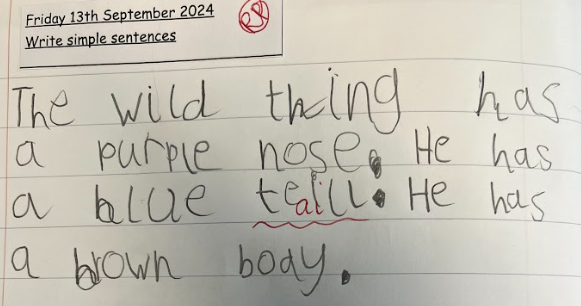 Friday 13th September 2024
Write simple sentences
RP
The wild thing has
a purple nose. He has
a blue He has
a brown body.